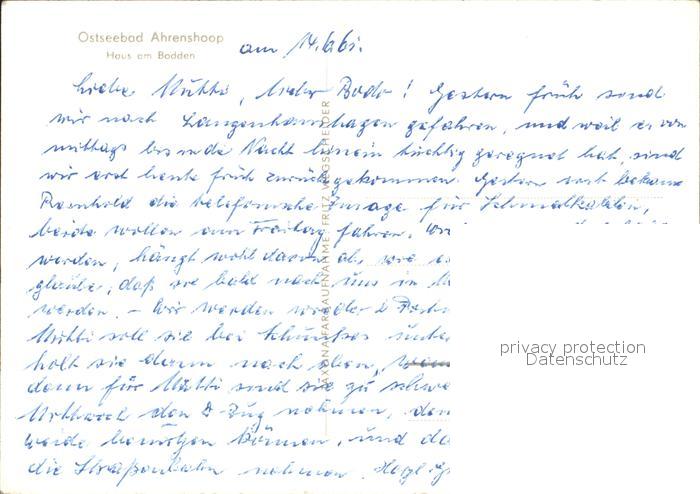 Ostseebad Ahrenshoop
Haus am Bodden
am 14.6.61.
Liebe Mutti, lieber Bodo! Gestern früh sind
wir nach Langenhanshagen gefahren, und weil es von
mittags bis in die Nacht hinein tüchtig geregnet hat, sind
wir erst heute früh zurückgekommen. Gestern erst bekam
Reinhold die telefonische Zusage für Schmalkalden,
beide wollen am Freitag fahren.
werden, hängt wohl davon ab, wie es
glaube, daß sie bald nach uns in
werden. – Wir werden wieder 2
Mutti soll sie bei
holt sie dann nach oben,
denn für Mutti sind sie zu schwe
Mittwoch den D Zug nehmen, den
beide benutzen können, und da
die Straßenbahn nehmen. Herzl.
SAXONIA FARBAUFNAHME FRITZ WEGSCHEIDER
privacy protection
Datenschutz